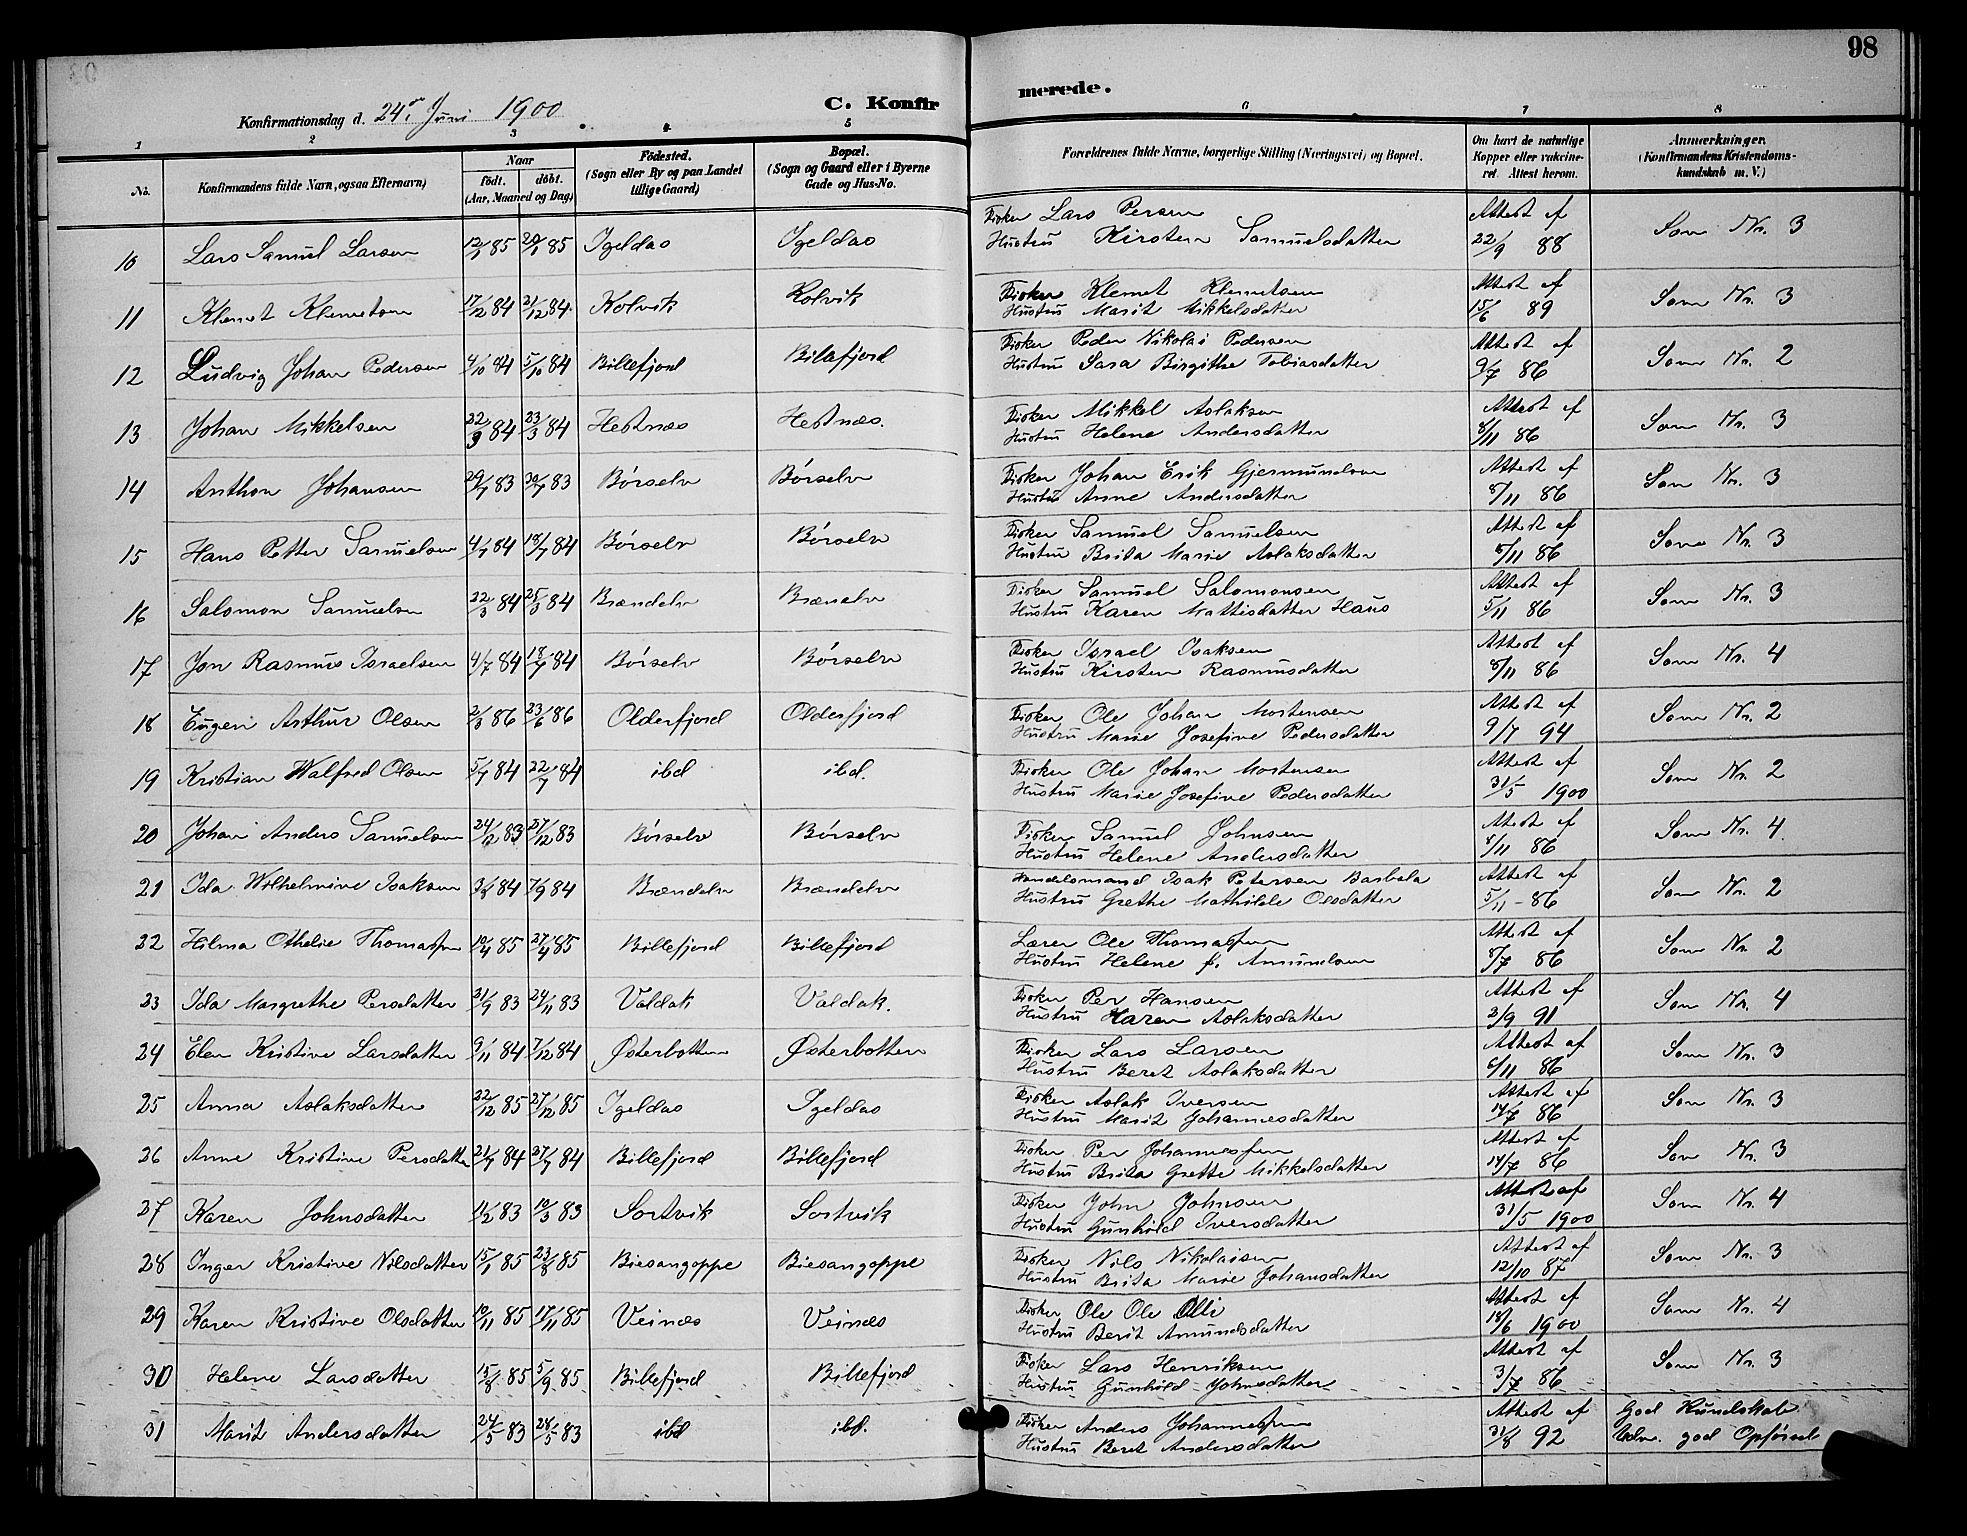 98
Konfirmationsdag d. 24de Juni 1900.
C. Konfirmerede.
1 2 3 4 5 6 7 8
No.
Konfirmandens fulde Navn, ogsaa Efternavn)
Naar
födt. döbt.
(Aar, Maaned og Dag)
Födested.
(Sogn eller By og paa Landet
tillige Gaard)
Bopæl.
(Sogn og Gaard eller i Byerne
Gade og Hus-No.
Forældrenes fulde Navne, borgerlige Stilling (Næringsvei) og Bopæl.
Om havt de naturlige
Kopper eller vakcine-
ret. Attest herom.
Anmærkninger.
(Konfirmandens Kristendoms-
kundskab m. V.)
10 Lars Samuel Larsen 85 85 Igeldas Igeldas Fisker Lars Persen Attest af Som Nr. 3
Hustru Kirsten Samuelsdatter 22/9 88
11 Klemet Klemetsen 17/12 84 21/12 84 Kolvik Kolvik Fisker Klemet Klemetsen Attest af Som Nr. 3
Hustru Marit Mikkelsdatter 15/6 89
12 Ludvig Johan Pedersen 4/10 84 5/10 84 Billefjord Billefjord Fisker Peder Nikolai Pedersen Attest af Som Nr. 2
Hustru Sara Birgithe Tobiasdatter 9/7 86
13 Johan Mikkelsen 22/3 84 23/3 84 Hestnæs Hestnæs. Fisker Mikkel Aslaksen Attest af Som Nr. 3
Hustru Helene Andersdatter 8/11 86
14 Anthon Johansen 29/7 83 30/7 83 Börselv Börselv Fisker Johan Erik Gjermundsen Attest af Som Nr. 3
Hustru Anne Andersdatter 8/11 86
15 Hans Petter Samuelsen 4/7 84 18/7 84 Börselv Börselv Fisker Samuel Samuelsen Attest af Som Nr. 3
Hustru Brita Marie Aslaksdatter 8/11 86
16 Salomon Samuelsen 22/3 84 25/3 84 Brændelv Brænelv Fisker Samuel Salomonsen Attest af Som Nr. 3
Hustru Karen Mattisdatter Haus 5/11 86
17 Jon Rasmus Israelsen 4/7 84 18/7 84 Börselv Börselv Fisker Israel Isaksen Attest af Som Nr. 4
Hustru Kirsten Rasmusdatter 8/11 86
18 Eugen Arthur Olsen 2/3 86 23/6 86 Olderfjord Olderfjord Fisker Ole Johan Mortensen Attest af Som Nr. 2
Hustru Marie Josefine Pedersdatter 9/7 94
19 Kristian Walfred Olsen 5/7 84 22/7 84 ibd ibd. Fisker Ole Johan Mortensen Attest af Som Nr. 2
Hustru Marie Josefine Pedersdatter 31/5 1900
20 Johan Anders Samuelsen 24/12 83 27/12 83 Börselv Börselv Fisker Samuel Johnsen Attest af Som Nr. 4.
Hustru Helene Andersdatter 8/11 86
21 Ida Wilhelmine Isaksen 84 7/9 84 Brændelv Brændelv Handelsmand Isak Petersen Barbala Attest af Som Nr. 2
Hustru Grethe Mathilde Olsdatter 5/11 - 86
22 Hilma Othelie Thomassen 10/4 85 27/4 85 Billefjord Billefjord Lærer Ole Thomassen Attest af Som Nr. 2
Hustru Helene f. Amundsen 8/7 86
23 Ida Margrethe Persdatter 21/9 83 24/11 83 Valdak Valdak. Fisker Per Hansen Attest af Som Nr. 4
Hustru Karen Aslaksdatter 2/9 91
24 Elen Kristine Larsdatter 9/11 84 7/12 84 Østerbotten Østerbotten Fisker Lars Larsen Attest af Som Nr. 3
Hustru Beret Aslaksdatter 6/11 86
25 Anna Aslaksdatter 22/12 85 27/12 85 Igeldas Igeldas Fisker Aslak Iversen Attest af Som Nr. 3
Hustru Marit Johannesdatter 14/7 86
26 Anne Kristine Persdatter 21/7 84 27/7 84 Billefjord Billefjord Fisker Per Johannessen Attest af Som Nr. 3
Hustru Brita Grette Mikkelsdatter 14/7 86
27 Karen Johnsdatter 11/2 83 10/3 83 Sortvik Sortvik Fisker John Johnsen Attest af Som Nr. 4
Hustru Gunhild Iversdatter 31/5 1900
28 Inger Kristine Nilsdatter 15/1 85 23/8 85 Biesangoppe Biesangoppe Fisker Nils Nikolaisen Attest af Som Nr. 3
Hustru Brita Marie Johansdatter 12/10 87
29 Karen Kristine Olsdatter 10/11 85 17/11 85 Veinæs Veinæs Fisker Ole Ole Olli Attest af Som Nr. 4
Hustru Berit Amundsdatter 18/6 1900
30 Helene Larsdatter 15/8 85 5/9 85 Billefjord Billefjord Fisker Lars Henriksen Attest af Som Nr. 3
Hustru Gunhild Johnsdatter 3/7 86
31 Marit Andersdatter 24/5 83 28/5 83 ibd ibd. Fisker Anders Johannessen Attest af God Kundskab
Hustru Beret Andersdatter 31/8 92 Udm. god Opførsel